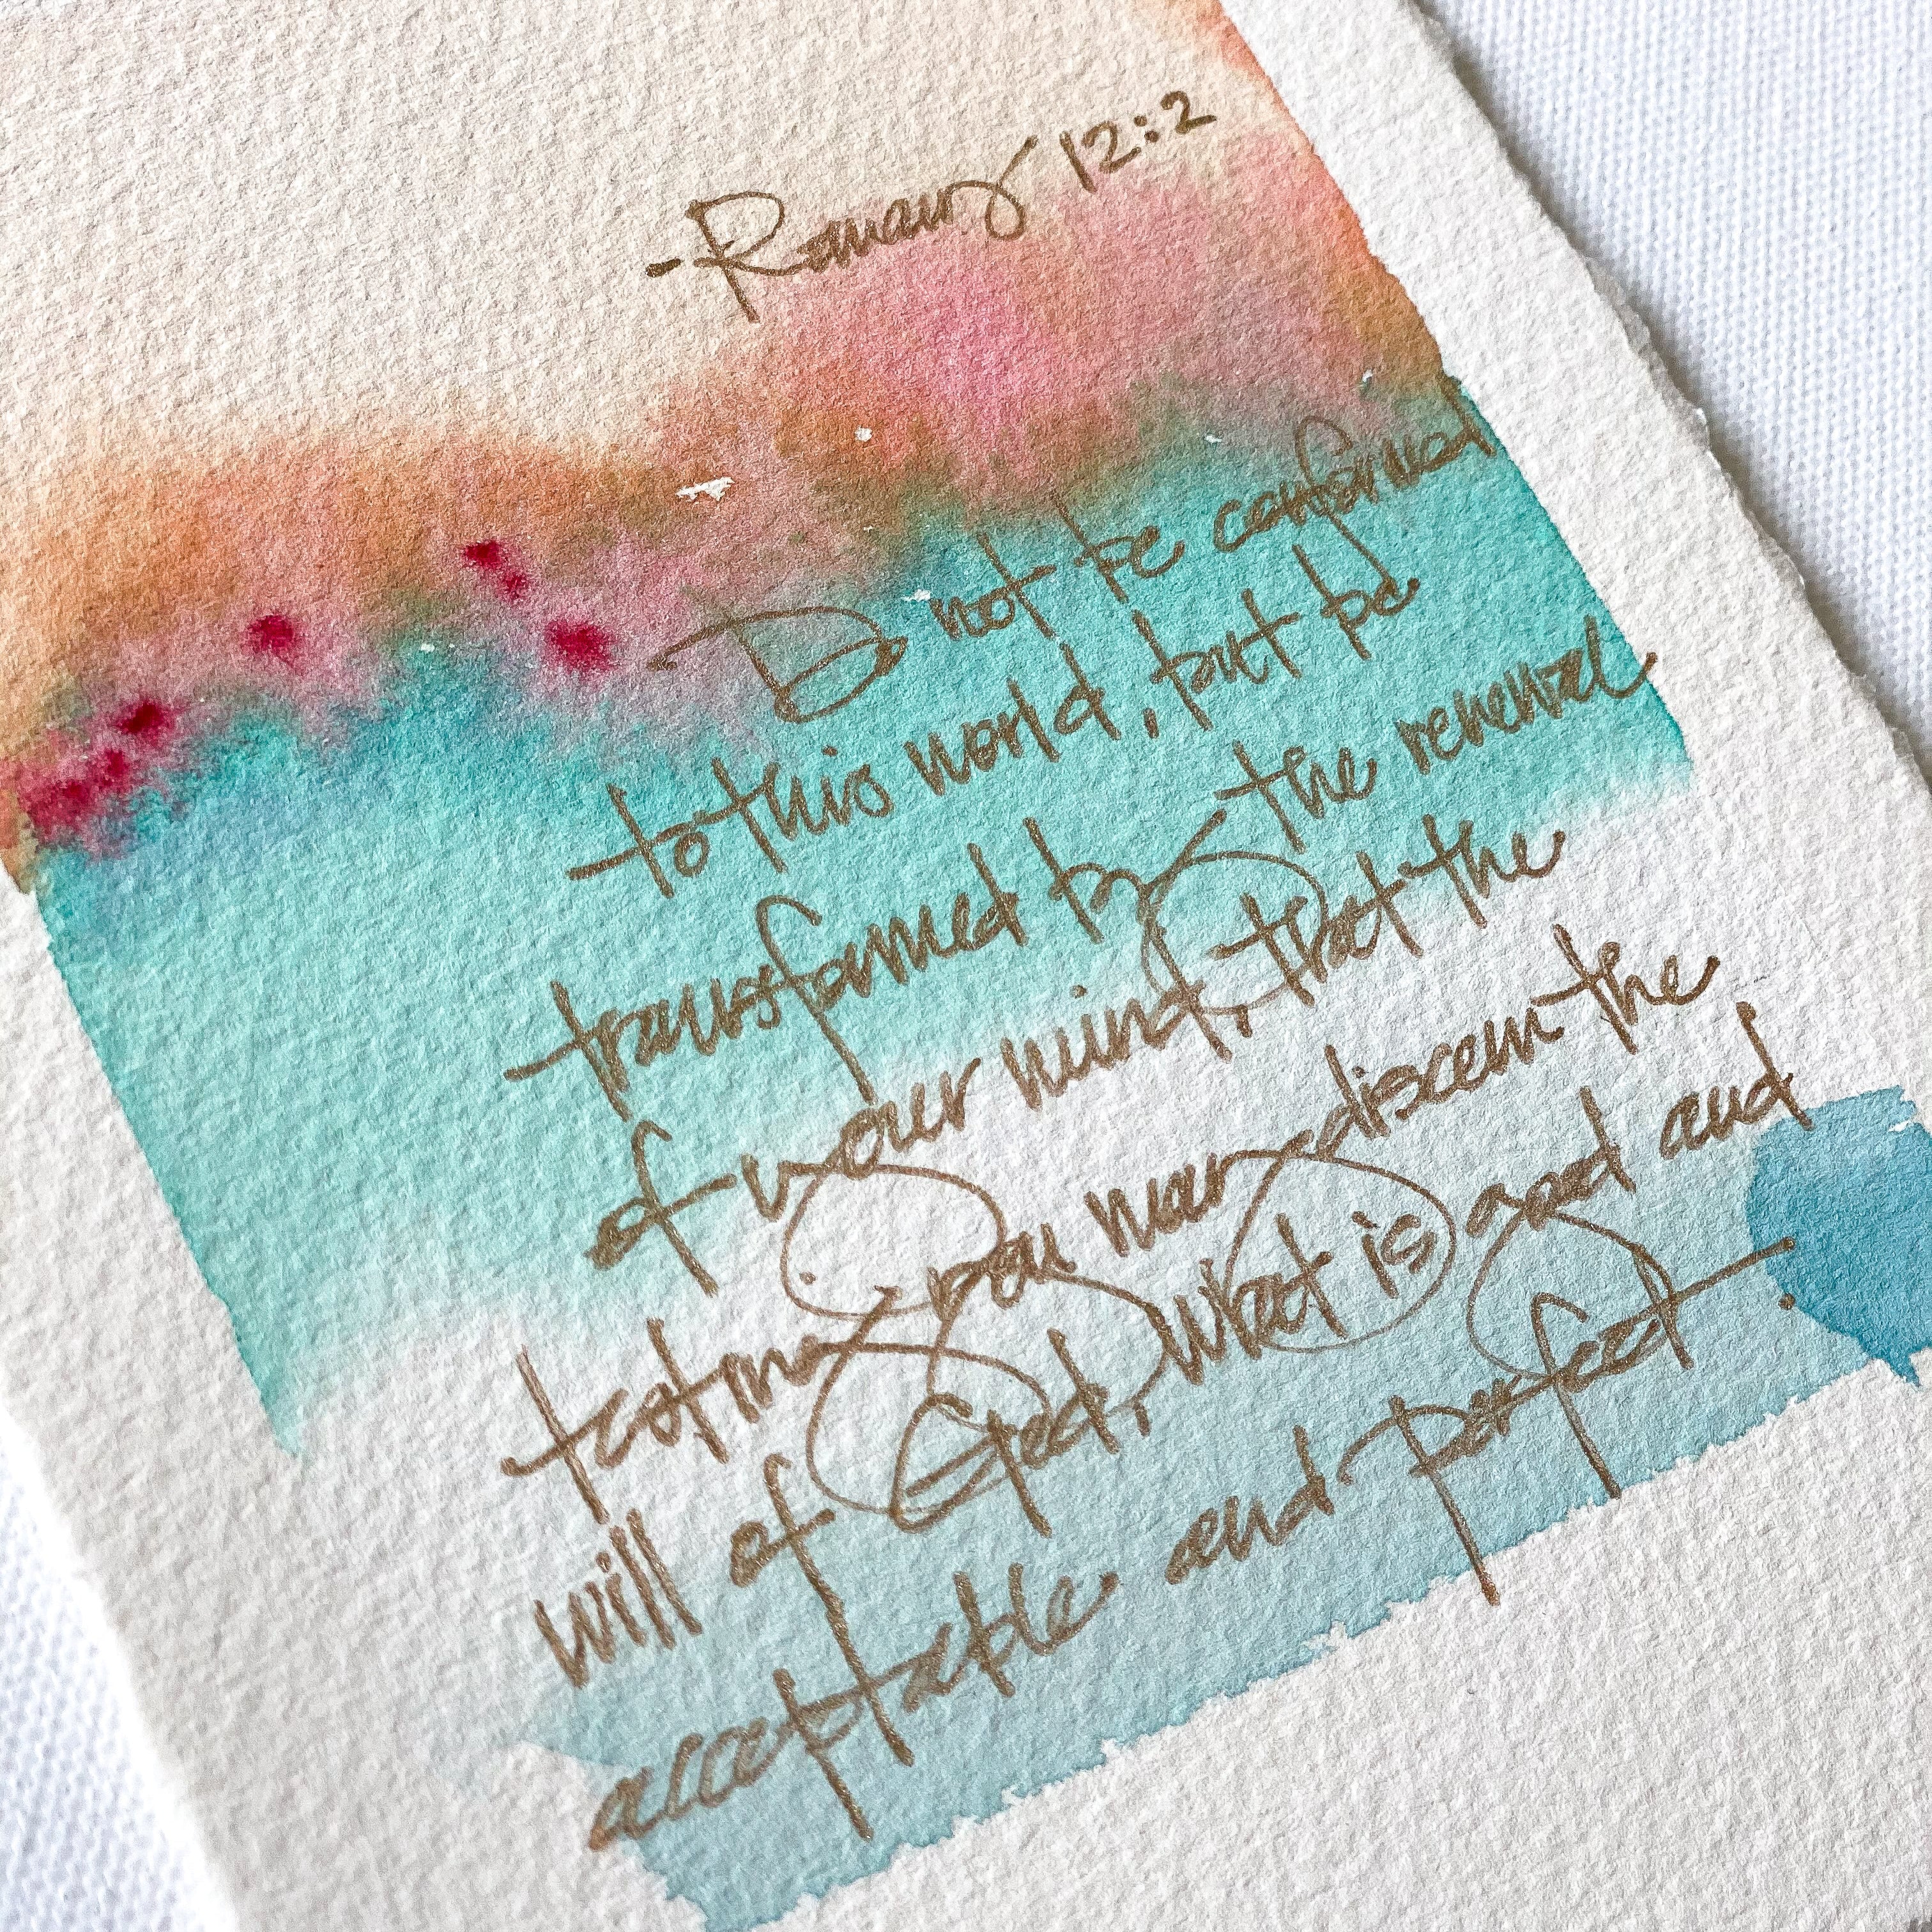 -Romans 12:2
Do not be conformed
to this world, but be
transformed by the renewal
of your mind, that the
testing you may discern the
will of God, what is good and
acceptable and perfect.